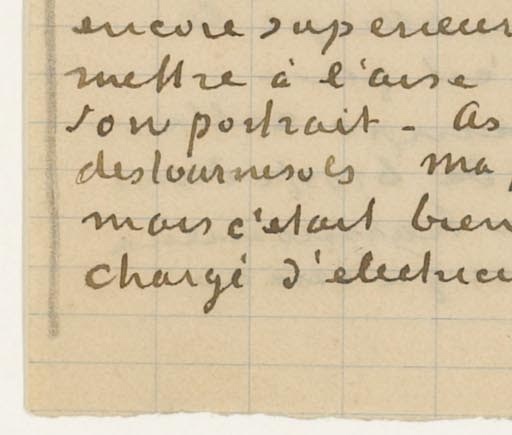 encore superieur
mettre à l'aise
son portrait - As
destournesols ma
mais c'etait bien
chargé d'electrici